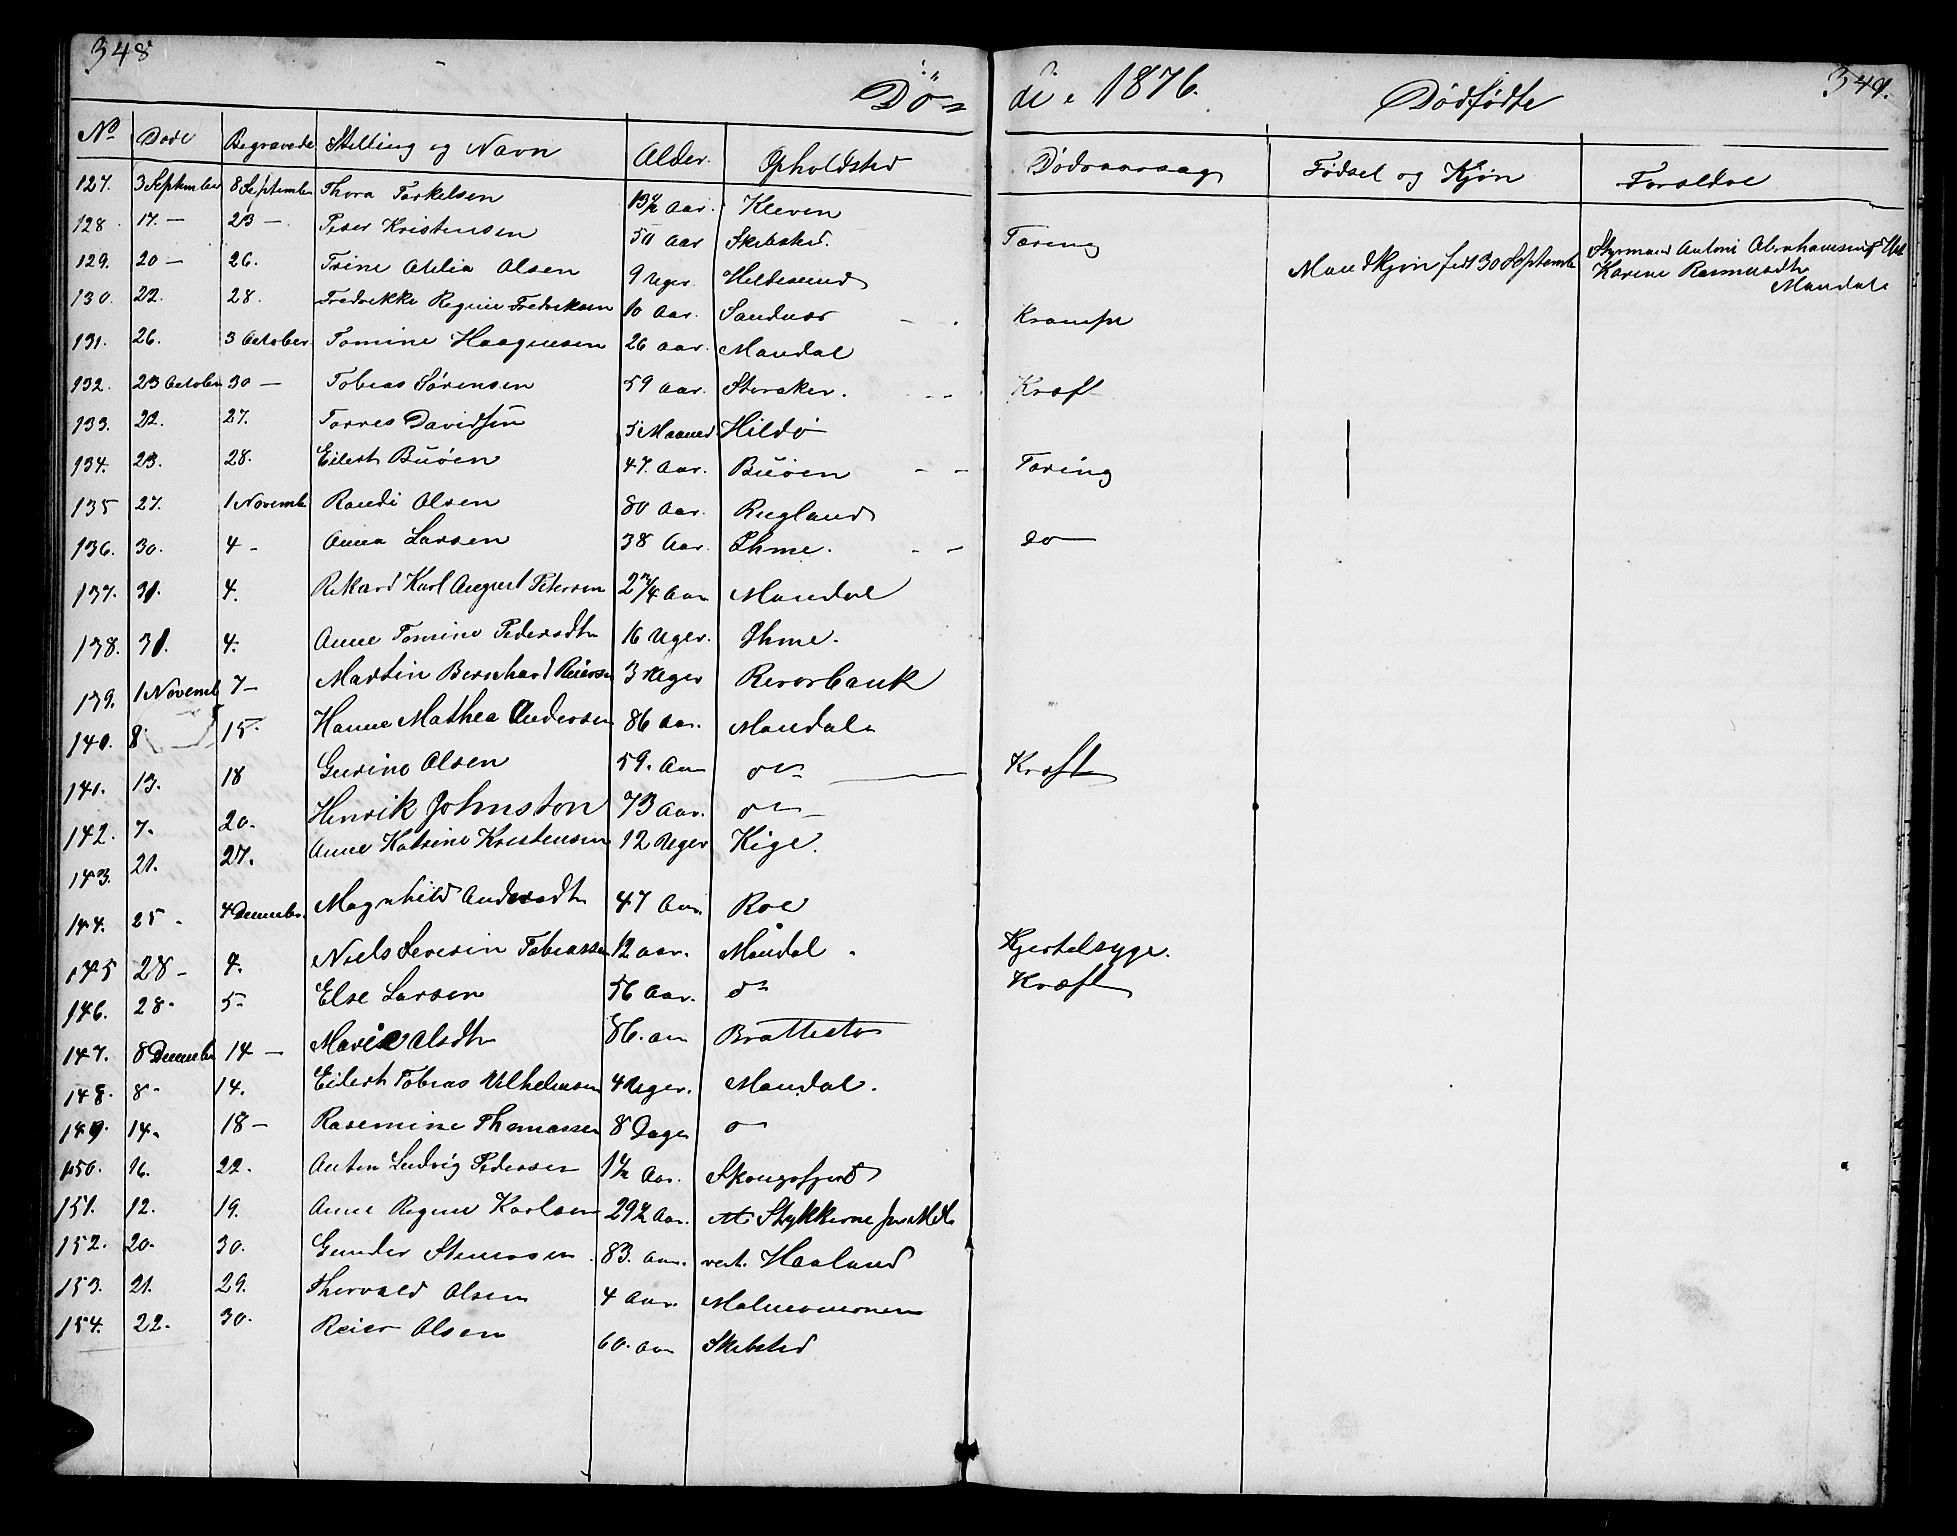 348
Dö-
de 1876.
Dødfødte
349.
No Døde Begravede Stilling og Navn Alder. Opholdsted Dødsaarsag Fødsel og Kjøn Forældre
127. 3 September 8 September Thora Torkelsen 13½ Aar. Kleven
128. 17. — 23 — Peser Kristensen 50 Aar Skibsted. Tæring
Mandkjøn født 30 September
Styrmand Antoni Abrahamsen og
Karene Rasmusdtr
Mandal
129. 20 — 26. Trine Atelia Olsen 9 Uger Hildesund
130. 22. 28. Fredrikke Regine Fredriksen 10 Aar. Sandnes - . Krampe
131. 26. 3 October. Tomine Haagensen 26 aar. Mandal
132. 23 October 30 — Tobias Sørensen 59 Aar. Storaker. Kræft
133. 22. 27. Torres Davidsen 5 Maaned Hildø
134. 23. 28. Eilert Buøen 47. Aar. Buøen - - Tæring
135 27. 1 Novemb Randi Olsen 80 Aar. Rugland
136. 30. 4 - Anna Larsen 38 Aar. Ihme. - - do
137. 31. 4. Rikard Karl August Petersen 2¾ Aar Mandal
138. 31. 4. Anne Tomine Pedersdtr 16 Uger. Ihme.
139. 1 Novemb 7 - Martin Bernhard Reiersen 3 Uger Rervorbank
140. 8 15. Hanne Mathea Andersen 86 Aar. Mandal
141. 13. 18 Gurine Olsen 59. Aar do Kræft
142. 7. 20. Henrik Johnston 73 Aar. do
143. 21. 27. Anne Katrine Kristensen 12 Uger Kige.
144. 25. 4 December. Magnhild Andersdtr 47 Aar. Roe
145 28 - 4. Niels Severin Tobiassen 12 aar. Mandal . Kjertelsyge.
146. 28. 5. Else Larsen 56 Aar. do Kræft
147. 8 December 14 — Marie Olsdtr 86. aar Brattestø
148. 8. 14. Eilert Tobias Vilhelmsen 4 Uger. Mandal.
149. 14. 18 — Rasemine Thomassen 8 Dage do
150. 16. 22. Anton Ludvig Pedersen 1½ Aar. Skogsfjord
151. 12. 19. Anne Regine Karlsen 29½ Aar. Stykkerne
152. 20. 30. Gunder Stenersen 83. Aar. vest. Haaland
153. 21. 29. Thorvald Olsen 4 Aar.
154. 22. 30. Reier Olsen 60. Aar Skibsted